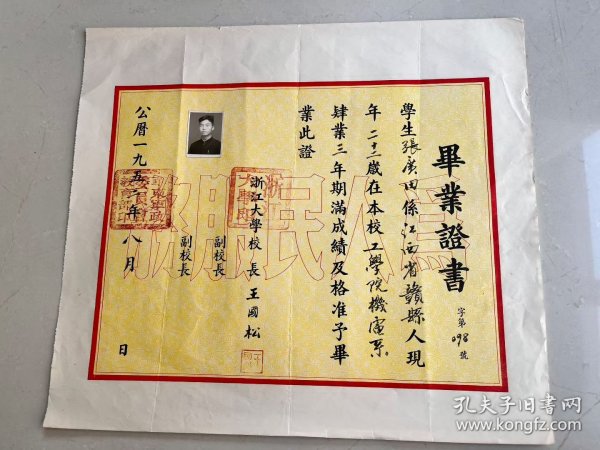 畢業證書
字第098號
學生張廣田係江西省贛縣人現
年二十二歲在本校工學院機電系
肄業三年期滿成績及格准予畢
業此證
浙江大學校長王國松
副校長
副校長
公曆一九五二年八月 日
為人民服
孔夫子旧书网
www.kongfz.com